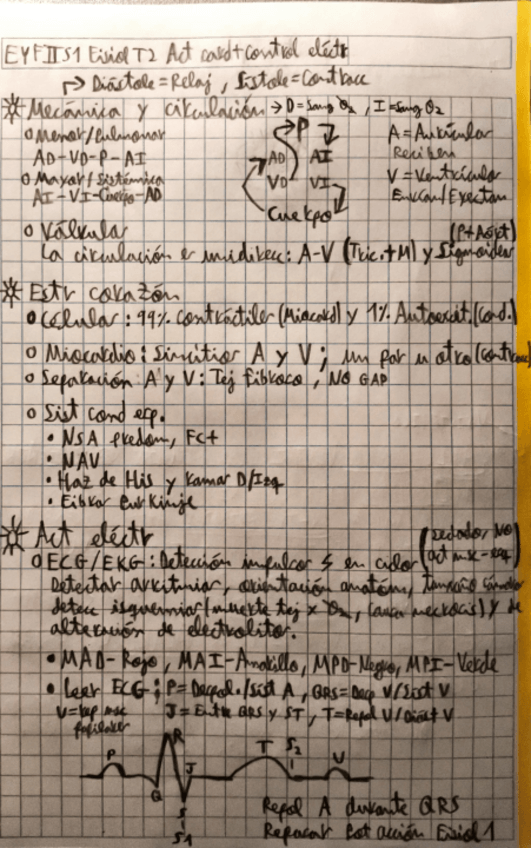 EYFIIS1 Fisiol T2 Act card+control eléctr
→ Diástole=Relaj, Sístole=Contracc
Mecánica y circulación → D=Sang O₂, I=Sang O₂
o Menor/Pulmonar
AD-VD-P-AI
o Mayor/Sistémica
AI-VI-Cuerpo-AD
P
AD AI
VD VI
Cuerpo
A=Aurícular
Reciben
V=Ventrícular
Envían/Eyectan
o Válvular (P+Aórt)
La circulación es unidirecc: A-V (Tric.+M) y Sigmoidea
Estr corazón
o Celular: 99% Contráctiles (Miocard) y 1% Autoexcit. (Cond.)
o Miocardio: Sincitios A y V; un por u otro (Contracc)
o Separación A y V: Tej fibroso, NO GAP
o Sist cond esp.
• NSA predom, FC+
• NAV
• Haz de His y ramas D/Izq
• Fibras Purkinje
Act eléctr (sedador, NO act msc-esq)
o ECG/EKG: Detección impulsos en
Detectar arritmias, orientación anatóm, tamaño
detecc isquemias (muerte tej x O₂, causa necrosis) y de
alteración de electrolitos.
• MAD-Rojo, MAI-Amarillo, MPD-Negro, MPI-Verde
• Leer ECG; P=Despol./Sist A, QRS=Desp V/Sist V
U=rep msc papilares J=Entre QRS y ST, T=Repol V/Diást V
P Q R S J T S2 U
S1
Repol A durante QRS
Repasar Pot acción Fisiol 1